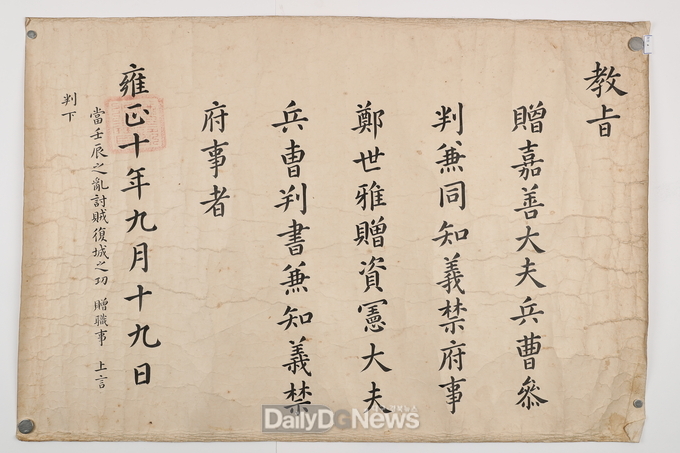 教旨
贈嘉善大夫兵曹參
判兼同知義禁府事
鄭世雅贈資憲大夫
兵曺判書兼知義禁
府事者
雍正十年九月十九日
當壬辰之亂討賊復城之功 贈職事 上言
判下
DailyDGNews